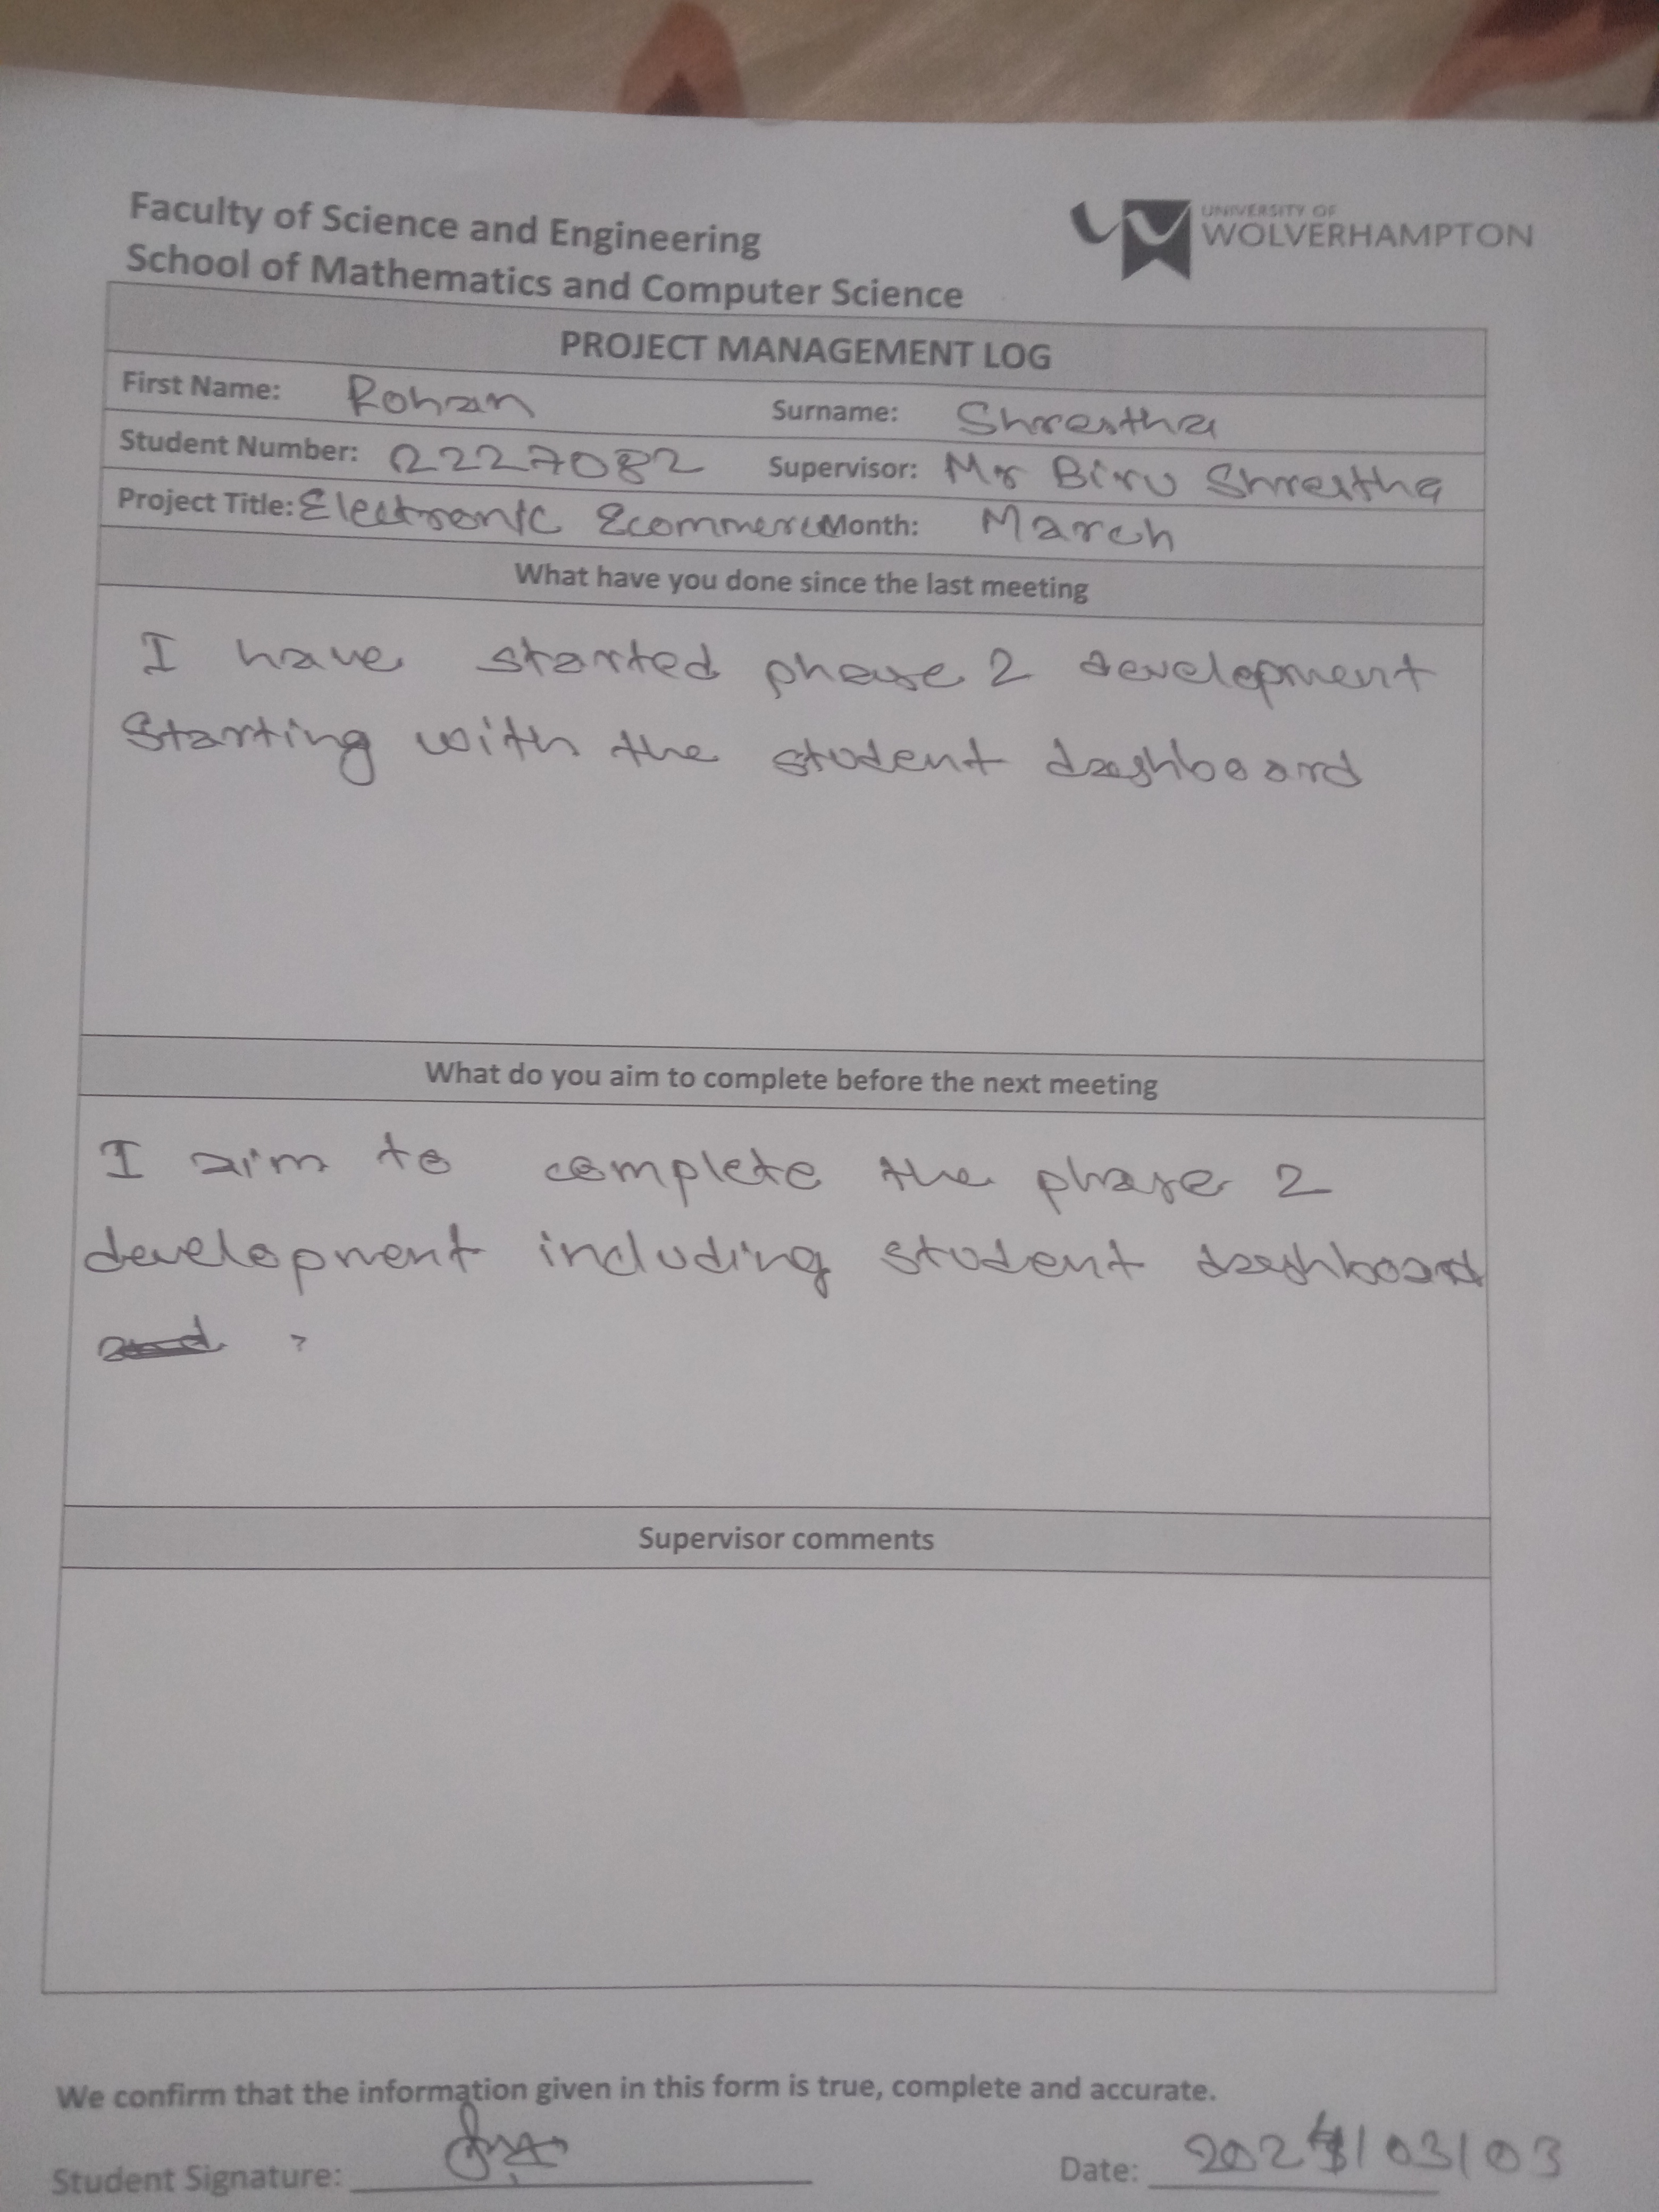 Faculty of Science and Engineering
School of Mathematics and Computer Science
UNIVERSITY OF
WOLVERHAMPTON
PROJECT MANAGEMENT LOG
First Name: Rohan Surname: Shrestha
Student Number: 2227082 Supervisor: Mr Biru Shrestha
Project Title: Electronic Ecommerce Month: March
What have you done since the last meeting
I have started phase 2 development
Starting with the student dashboard
What do you aim to complete before the next meeting
I aim to complete the phase 2
development including student dashboard
Supervisor comments
We confirm that the information given in this form is true, complete and accurate.
Student Signature:
Date: 2024/03/03